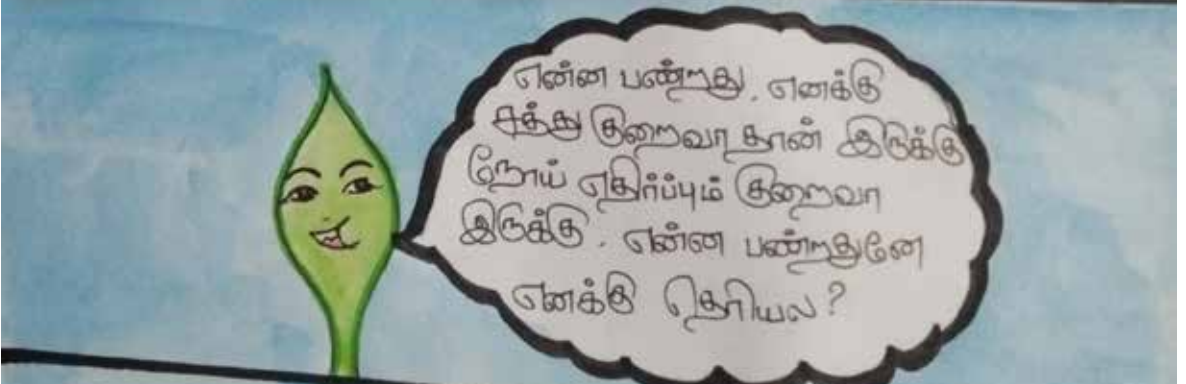 என்ன பண்றது. எனக்கு
சத்து குறைவா தான் இருக்கு
நோய் எதிர்ப்பும் குறைவா
இருக்கு. என்ன பண்றதுனே
எனக்கு தெரியல?